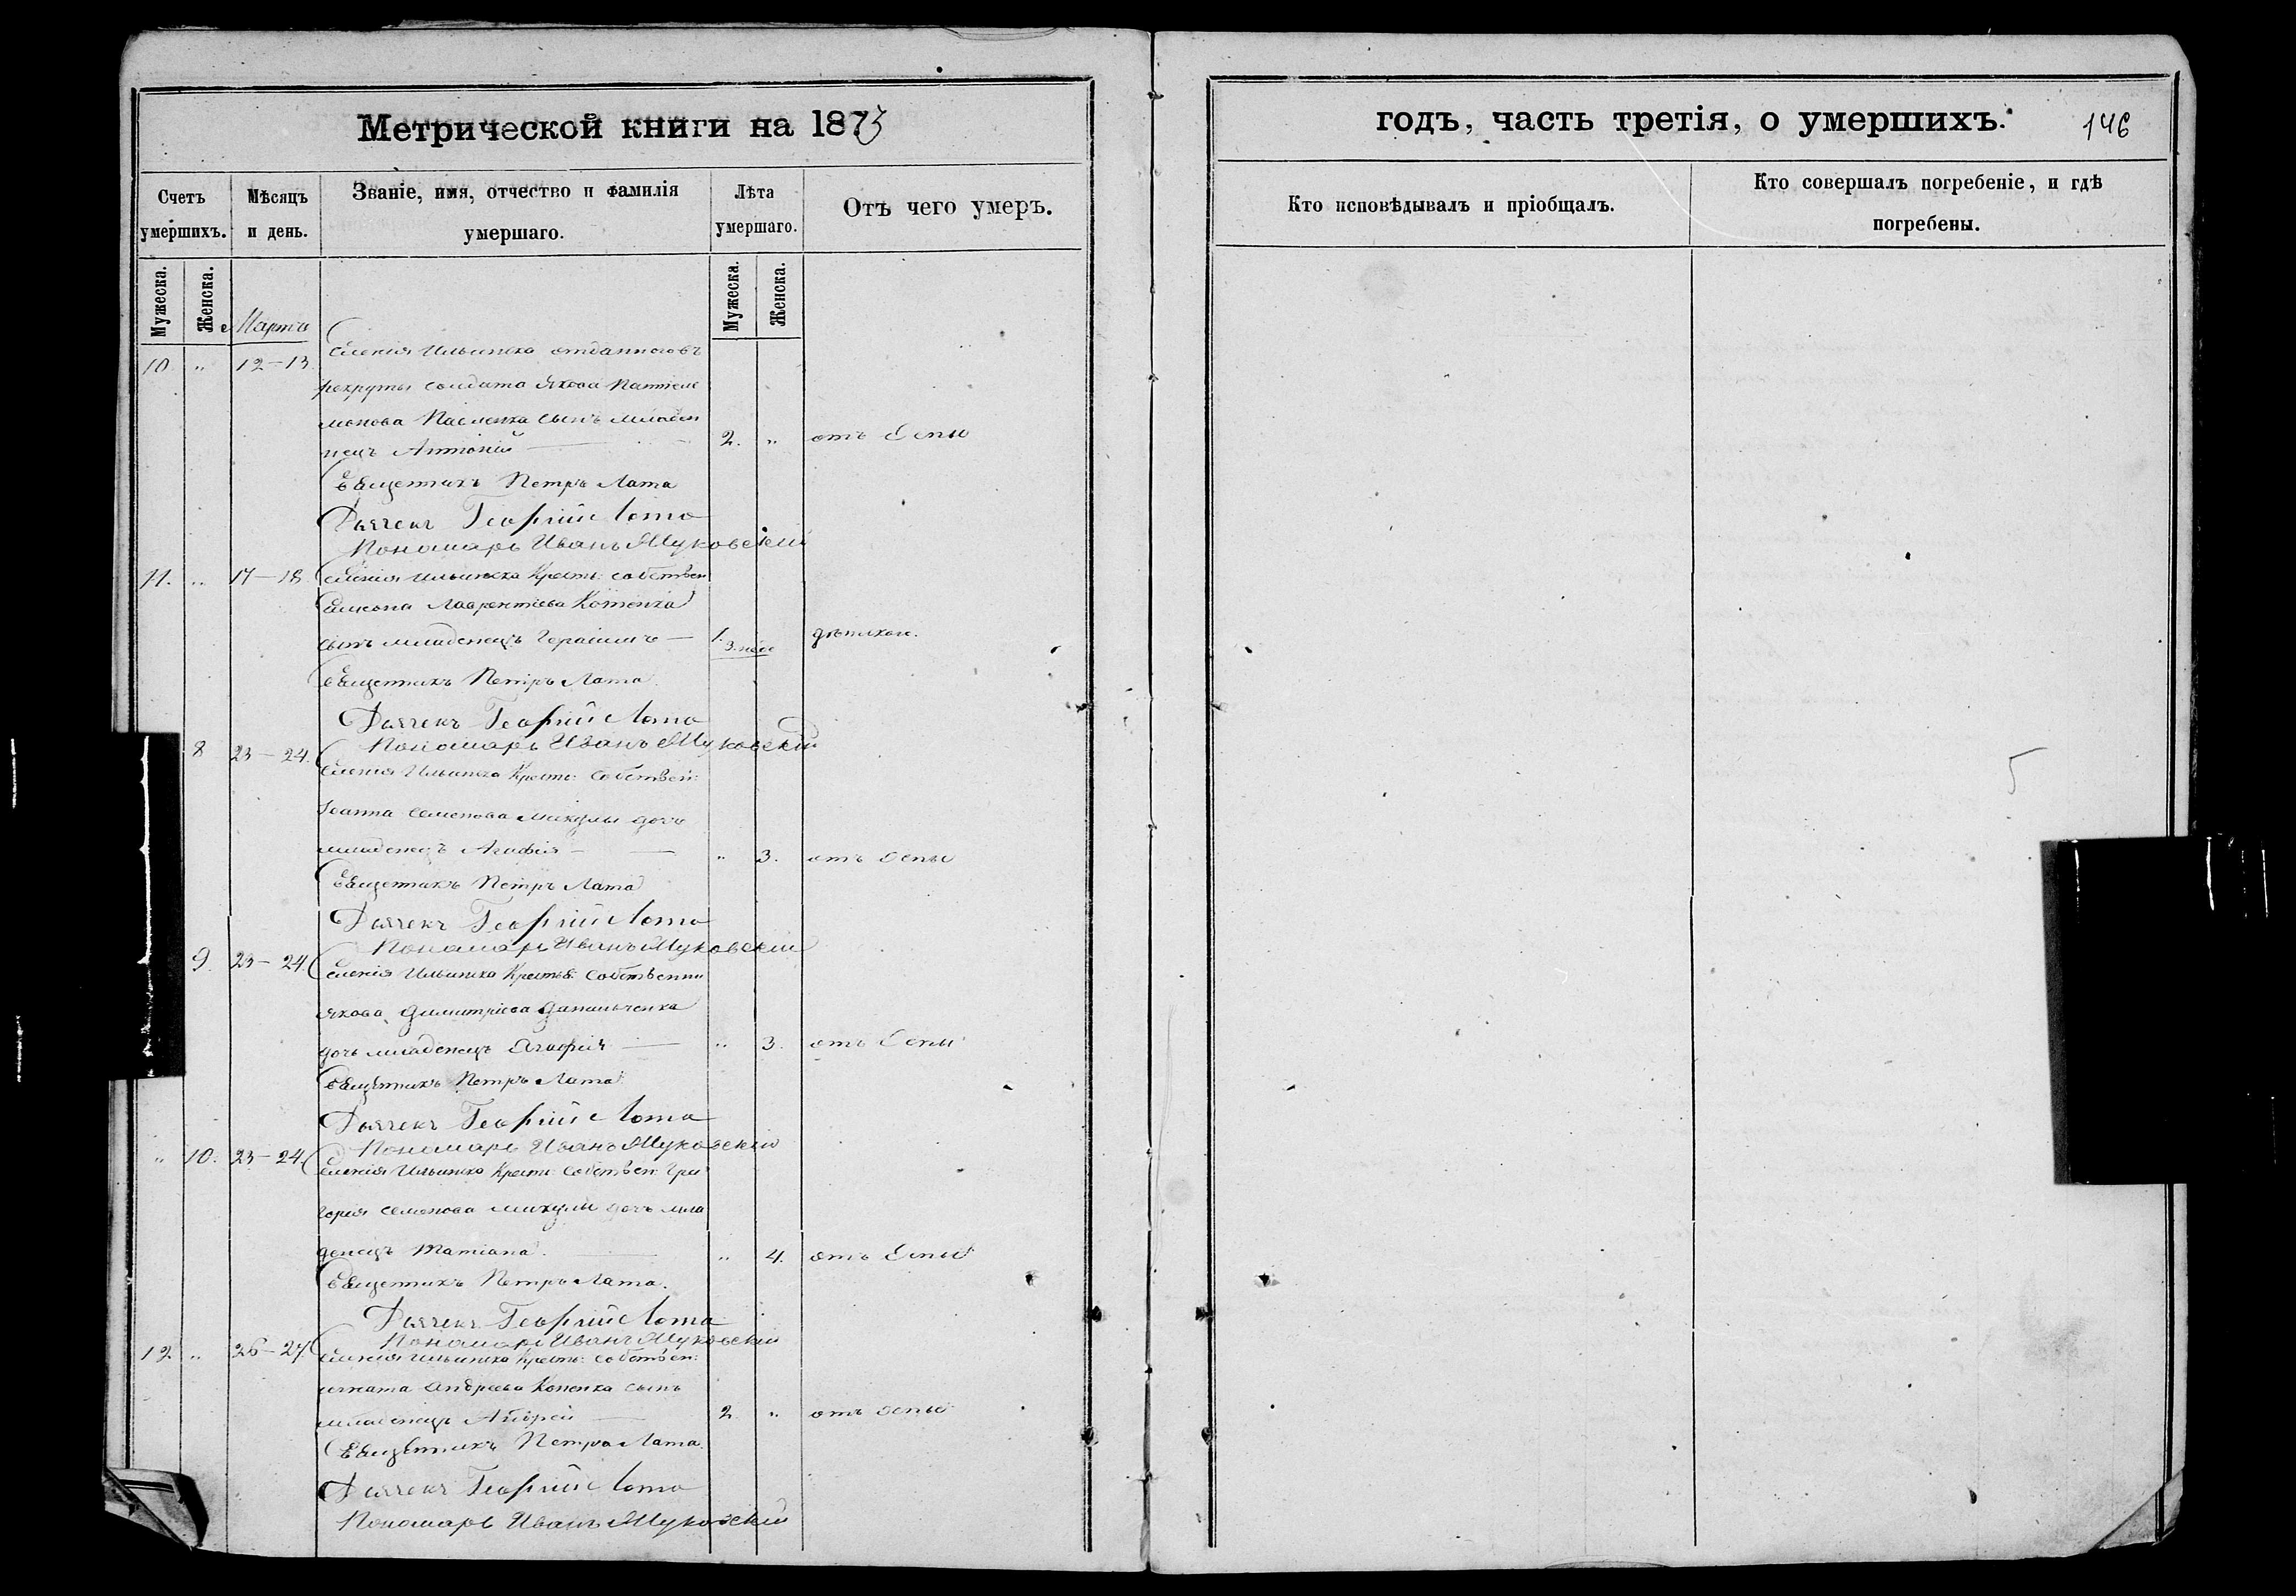 Метрической книги на 1873
годъ, часть третія, о умершихъ.
146
Счетъ умершихъ.
Мѣсяцъ и день.
Званіе, имя, отчество и фамилія умершаго.
Лѣта умершаго.
Отъ чего умеръ.
Кто исповѣдывалъ и пріобщалъ.
Кто совершалъ погребеніе, и гдѣ погребены.
Мужеска.
Женска.
Мужеска.
Женска.
Мартъ
10. " 12–13. селенія Ильинска отданного въ
рекруты солдата Якова Пантеле
монова Павленка сынъ младен
нецъ Антоній 2. " отъ Оспы
Священникъ Петръ Лата
Дьячекъ Георгій Лата
Пономарь Иванъ Жуковскій
11. " 17–18. селенія Ильинска Крест: собствен
Симеона Лаврентіева Котенка
сынъ младенецъ Герасимъ 1. 3. нед
Священникъ Петръ Лата
Дьячекъ Георгій Лата
Пономарь Иванъ Жуковскій
8 23–24. селенія Ильинска Крест: собствен:
Іоанна Семенова Микулы дочь
младенецъ Агафія " 3. отъ оспы
Священникъ Петръ Лата
Дьячекъ Георгій Лата
Пономарь Иванъ Жуковскій
9. 23–24. селенія Ильинска Крестья: собственни
Якова Димитріева Данильченка
дочь младенецъ Агафія " 3. отъ Оспы
Священникъ Петръ Лата
Дьячекъ Георгій Лата
Пономарь Иванъ Жуковскій
" 10. 23–24. селенія Ильинска Крест: собствен: Гри
горія Семенова Микулы дочь мла
денецъ Татіана. " 4. отъ Оспы
Священникъ Петръ Лата.
Дьячекъ Георгій Лата
Пономарь Иванъ Жуковскій
12 " 26–27. селенія Ильинска Крест: собствен:
Игната Андреева сынъ
младенецъ Андрей 2. " отъ оспы
Священникъ Петръ Лата.
Дьячекъ Георгій Лата
Пономарь Иванъ Жуковскій